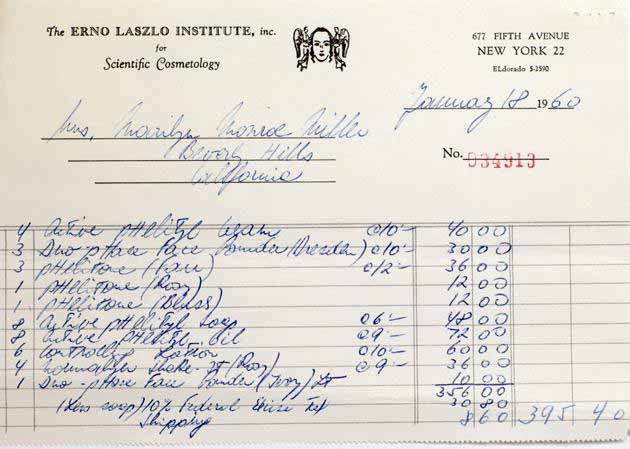 The ERNO LASZLO INSTITUTE, inc.
for
Scientific Cosmetology
677 FIFTH AVENUE
NEW YORK 22
ELdorado 5-2590
January 18 1960
Mrs. Marilyn Monroe Miller
Beverly Hills
California
No. D34913
4 Active pHelityl Cream @10- 40 00
3 Duo-pHase Face Powder @10- 30 00
3 pHelitone (Fair) @12- 36 00
1 pHelitone (Rosy) 12 00
1 pHelitone 12 00
8 Active pHelityl Soap @6- 48 00
8 Active pHelityl Oil @9- 72 00
6 Controlling Lotion @10- 60 00
4 Shake-It (Rosy) @9- 36 00
1 Duo-pHase Face Powder (Ivory) Lt 10 00
356 00
(Less soap) 10% Federal Excise Tax 30 80
Shipping 8 60 395 40